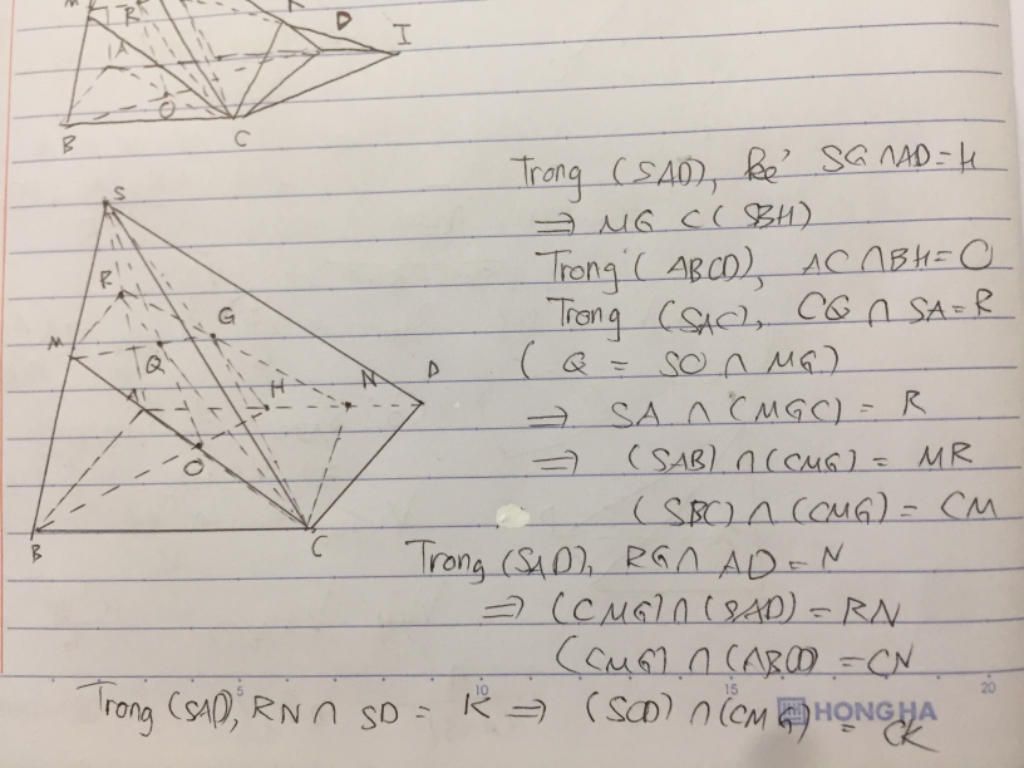 M
R
K
D
I
A
O
B
C
S
R
G
M
Q
H
N
D
A
O
B
C
Trong (SAD), kẻ SG ∩ AD = H
⇒ MG ⊂ (SBH)
Trong (ABCD), AC ∩ BH = O
Trong (SAC), CQ ∩ SA = R
( Q = SO ∩ MG)
⇒ SA ∩ (MGC) = R
⇒ (SAB) ∩ (CMG) = MR
(SBC) ∩ (CMG) = CM
Trong (SAD), RG ∩ AD = N
⇒ (CMG) ∩ (SAD) = RN
(CMG) ∩ (ABCD) = CN
5 10 15 20
Trong (SAD), RN ∩ SD = K ⇒ (SCD) ∩ (CMG) = CK
HONG HA